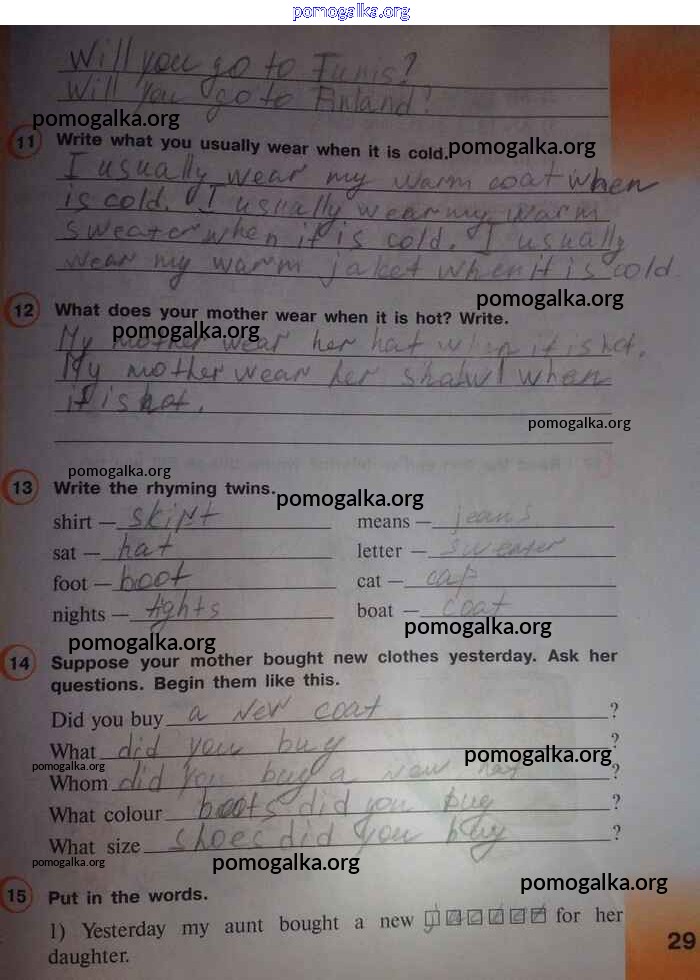 pomogalka.org
Will you go to Tunis?
Will you go to Finland?
pomogalka.org
11 Write what you usually wear when it is cold. pomogalka.org
I usually wear my warm coat when
is cold. I usually wear my warm
sweater when it is cold. I usually
wear my warm jaket when it is cold.
pomogalka.org
12 What does your mother wear when it is hot? Write.
pomogalka.org
My mother wear her hat when it is hot.
My mother wear her shahwl when
it is hot.
pomogalka.org
pomogalka.org
13 Write the rhyming twins. pomogalka.org
shirt — skirt means — jeans
sat — hat letter — sweater
foot — boot cat — cap
nights — tights boat — coat
pomogalka.org pomogalka.org
14 Suppose your mother bought new clothes yesterday. Ask her
questions. Begin them like this.
Did you buy a new coat ?
What did you buy ?
pomogalka.org pomogalka.org
Whom did you buy a new hat ?
What colour boots did you buy ?
What size shoes did you buy ?
pomogalka.org pomogalka.org
pomogalka.org
15 Put in the words.
1) Yesterday my aunt bought a new j for her
daughter.
29